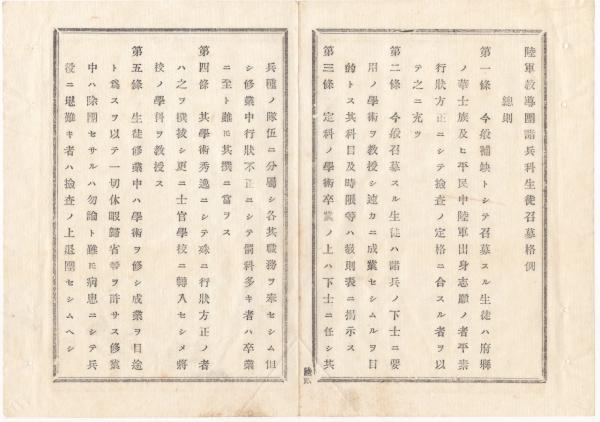 陸軍敎導團諸兵科生徒召募格例
總則
第一條　今般補缺トシテ召募スル生徒ハ府縣
ノ華士族及ヒ平民中陸軍出身志願ノ者平素
行狀方正ニシテ撿査ノ定格ニ合スル者ヲ以
テ之ニ充ツ
第二條　今般召募スル生徒ハ諸兵ノ下士ニ要
用ノ學術ヲ敎授シ速カニ成業セシムルヲ目
的トス其科目及時限等ハ敎則表ニ揭示ス
第三條　定科ノ學術卒業ノ上ハ下士ニ任シ其
兵種ノ隊伍ニ分屬シ各其職務ヲ奉セシム但
シ修業中行狀不正ニシテ罰科多キ者ハ卒業
ニ至ト雖𪜈其撰ニ當ラス
第四條　其學術秀逸ニシテ殊ニ行狀方正ノ者
ハ之ヲ撰拔シ更ニ士官學校ニ轉入セシメ將
校ノ學科ヲ敎授ス
第五條　生徒修業中ハ學術ヲ修シ成業ヲ目途
ト爲スヲ以テ一切休暇歸省等ヲ許サス修業
中ハ除團セサルハ勿論ト雖𪜈病患ニシテ兵
役ニ堪難キ者ハ撿査ノ上退團セシムヘシ